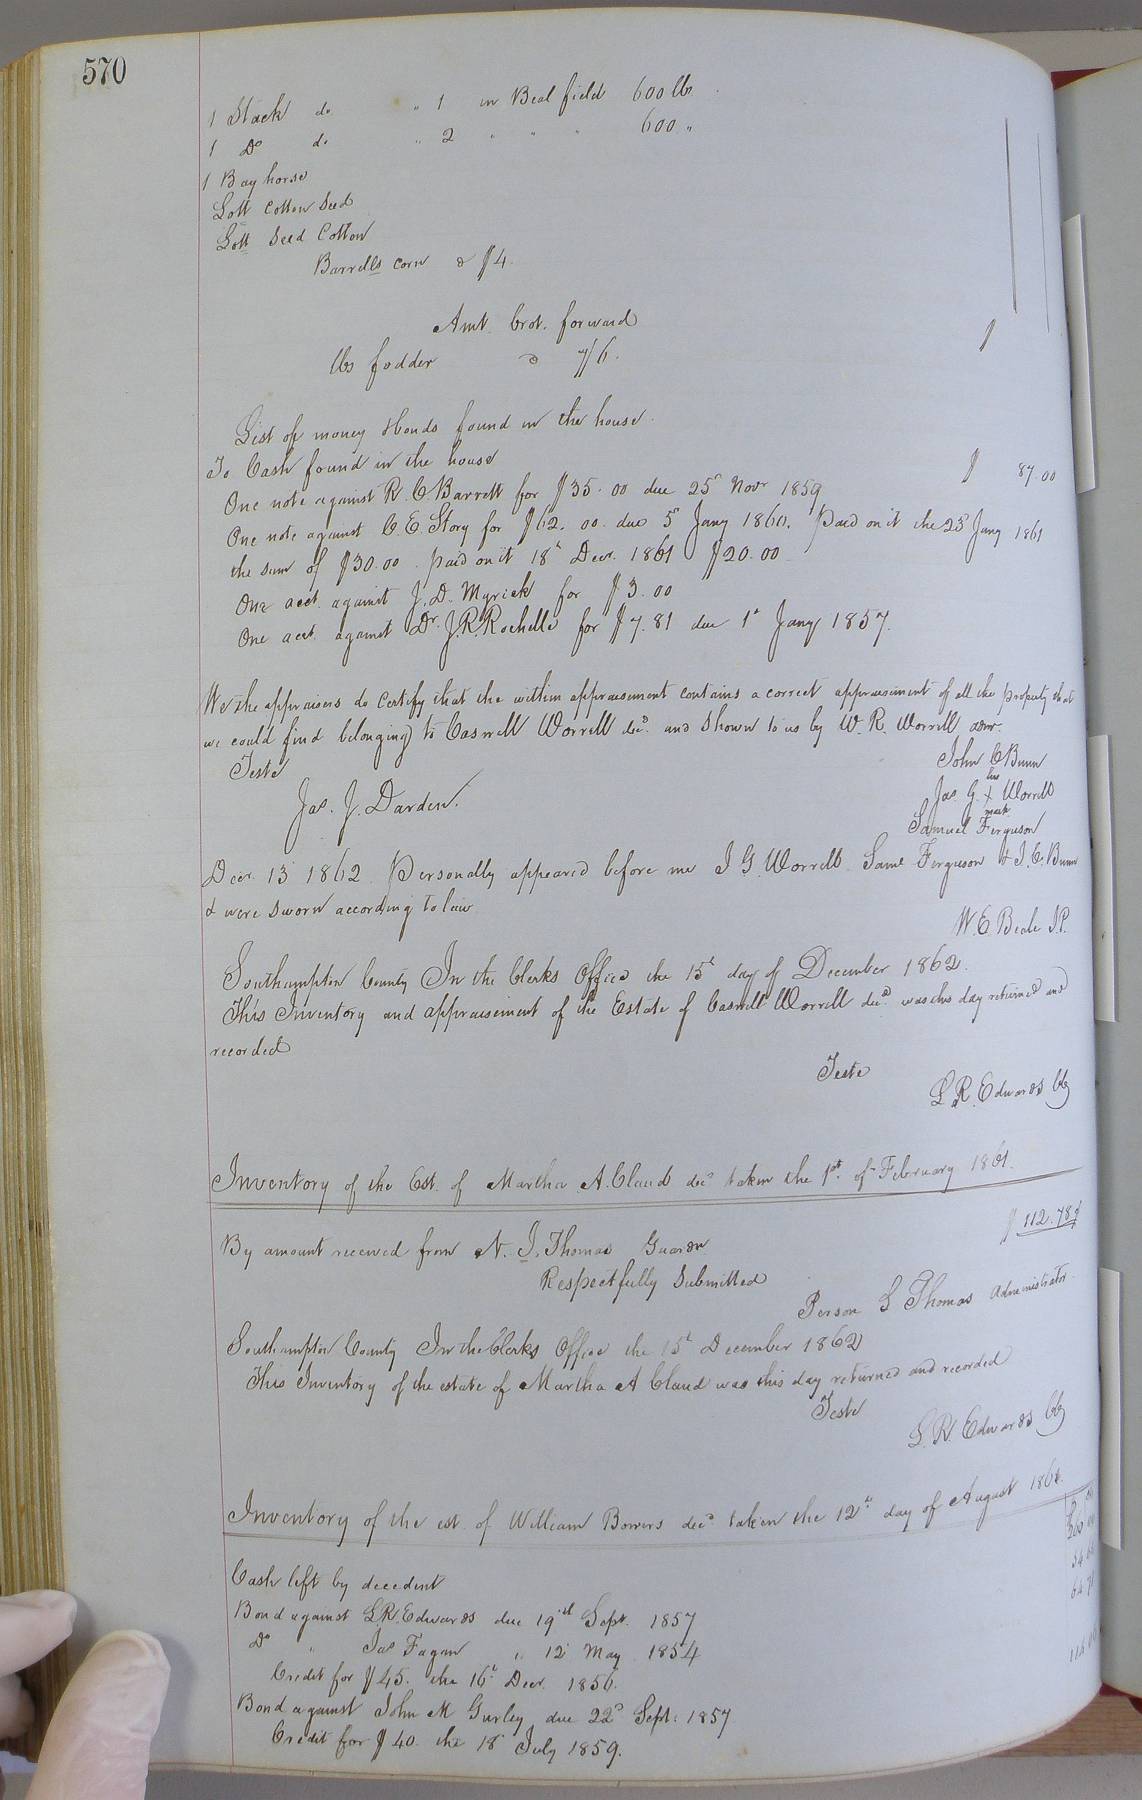 570
1 Stack do " 1 in Beal field 600 lb
1 Do do " 2 " " " 600 "
1 Bay horse
Lott Cotton Seed
Lott Seed Cotton
Barrells corn @ $4.
Amt. brot. forward $
lbs fodder @ 7/6.
List of money & bonds found in the house.
To Cash found in the house $ 87.00
One note against R. C. Barrett for $35.00 due 25th Novr 1859
One note against C. E. Story for $62.00 due 5th Jany 1860. Paid on it the 23d Jany 1861
the sum of $30.00. Paid on it 18th Decr. 1861 $20.00
One acct. against J. D. Myrick for $3.00
One acct. against Dr. J. R. Rochelle for $7.81 due 1st Jany 1857.
We the appraisers do certify that the within appraisement contains a correct appraisement of all the property that
we could find belonging to Caswell Worrell decd. and shown to us by W. R. Worrell admr.
Teste John C Bunn
Jas. J. Darden. Jas. G. his X mark Worrell
Samuel Ferguson
Decr. 13 1862. Personally appeared before me J. G. Worrell Saml Ferguson & J. C. Bunn
& were sworn according to law
W. E. Beale J.P.
Southampton County In the Clerks Office the 15th day of December 1862.
This Inventory and appraisement of the Estate of Caswell Worrell decd. was this day returned and
recorded
Teste
L. R. Edwards Clk
Inventory of the Est. of Martha A. Claud decd taken the 1st. of February 1861.
By amount received from N. J. Thomas Guardn $ 112.78
Respectfully Submitted
Person S Thomas Administrator
Southampton County In the Clerks Office the 15th December 1862
This Inventory of the estate of Martha A Claud was this day returned and recorded
Teste
L. R. Edwards Clk
Inventory of the est. of William Bowers decd taken the 12th. day of August 186
Cash left by decedent
Bond against L. R. Edwards due 19th Sept. 1857
Do " Jas Fagan " 12 May 1854
Credit for $45. the 16th Decr. 1856.
Bond against John M Gurley due 22d Sept. 1857
Credit for $40. the 18 July 1859.